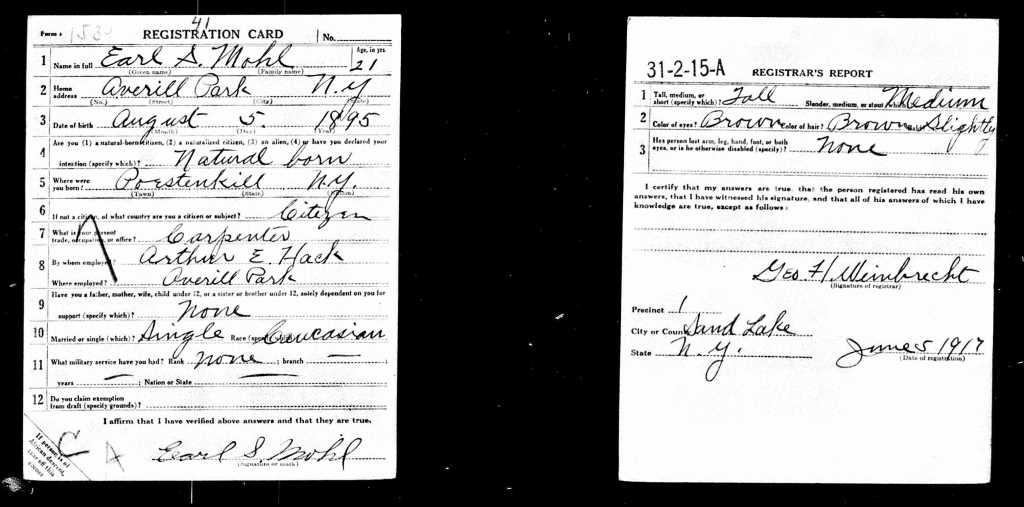 Form 1 153 41 REGISTRATION CARD No.
1 Name in full Earl S. Mohl Age, in yrs 21
(Given name) (Family name)
2 Home address Averill Park N.Y
(No.) (Street) (City) (State)
3 Date of birth August 5. 1895
(Month) (Day) (Year)
4 Are you (1) a natural-born citizen, (2) a naturalized citizen, (3) an alien, (4) or have you declared your
intention (specify which)? Natural born
5 Where were you born? Poestenkill N.Y.
(Town) (State) (Nation)
6 If not a citizen, of what country are you a citizen or subject? Citizen
7 What is your present trade, occupation, or office? Carpenter
8 By whom employed? Arthur E. Hack
Where employed? Averill Park
9 Have you a father, mother, wife, child under 12, or a sister or brother under 12, solely dependent on you for
support (specify which)? None
10 Married or single (which)? Single Race (specify which)? Caucasian
11 What military service have you had? Rank none ; branch — ;
years — ; Nation or State —
12 Do you claim exemption
from draft (specify grounds)?
I affirm that I have verified above answers and that they are true.
Earl S. Mohl
(Signature or mark)
If person is of
African descent,
tear off this
corner
C
A
31-2-15-A REGISTRAR'S REPORT
1 Tall, medium, or short (specify which)? Tall Slender, medium, or stout (which)? Medium
2 Color of eyes? Brown Color of hair? Brown Bald? Slightly
3 Has person lost arm, leg, hand, foot, or both
eyes, or is he otherwise disabled (specify)? None
I certify that my answers are true, that the person registered has read his own
answers, that I have witnessed his signature, and that all of his answers of which I have
knowledge are true, except as follows:
Geo. H. Weinbrecht
(Signature of registrar)
Precinct 1
City or County Sand Lake
State N.Y. June 5 1917
(Date of registration)